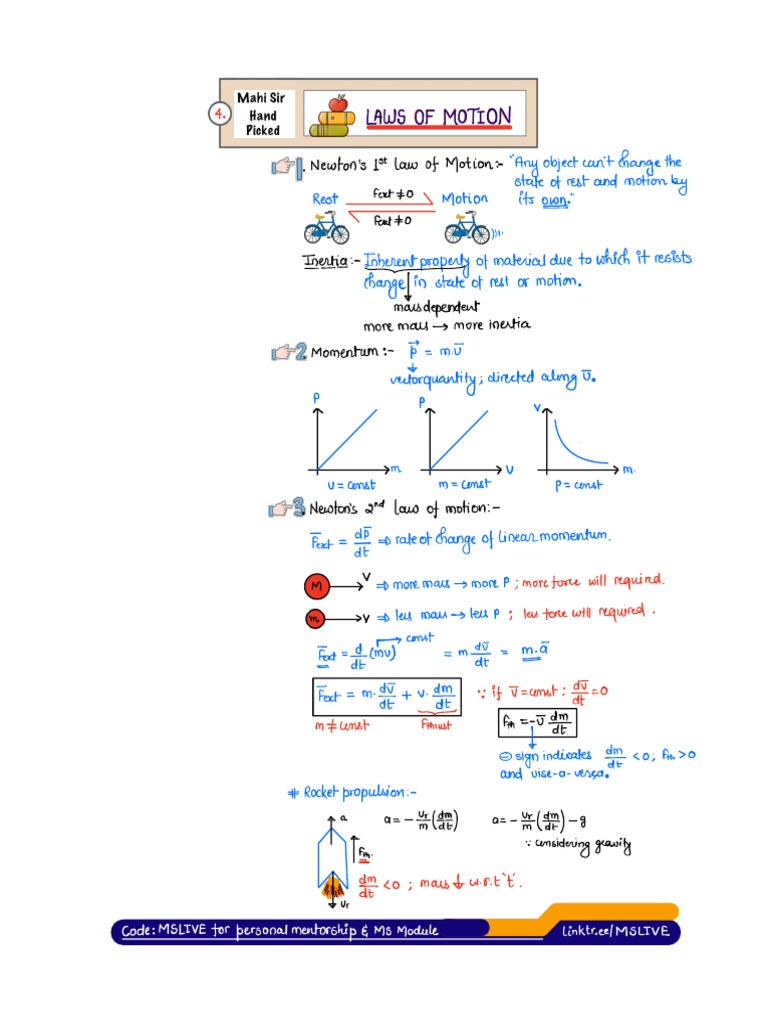 4.
Mahi Sir
Hand
Picked
LAWS OF MOTION
1. Newton's 1st law of Motion:- "Any object can't change the
state of rest and motion by
its own."
Rest Fext ≠ 0 Motion
Fext ≠ 0
Inertia:- Inherent property of material due to which it resists
change in state of rest or motion.
mass dependent
more mass → more inertia
2. Momentum :- p⃗ = m.v̅
vector quantity ; directed along v̅.
P P V
m V m.
v = const m = const P = const
3. Newton's 2nd law of motion:-
F̅ext = dp̅/dt ⇒ rate of change of linear momentum.
M V ⇒ more mass → more P ; more force will required.
m V ⇒ less mass → less P ; less force will required.
F̅ext = d/dt (mv) → const = m dv̅/dt = m.a̅
F̅ext = m. dv̅/dt + v. dm/dt ∵ if v̅ = const : dv̅/dt = 0
m ≠ const Fthrust
Fth = -v̅ dm/dt
⊖ sign indicates dm/dt < 0 ; Fth > 0
and vise-a-versa.
# Rocket propulsion:-
a a = - vr/m (dm/dt) a = - vr/m (dm/dt) - g
∵ considering gravity
Fth.
dm/dt < 0 ; mass ↓ w.r.t 't'.
vr
Code: MSLIVE for personal mentorship & MS Module
linktr.ee/MSLIVE